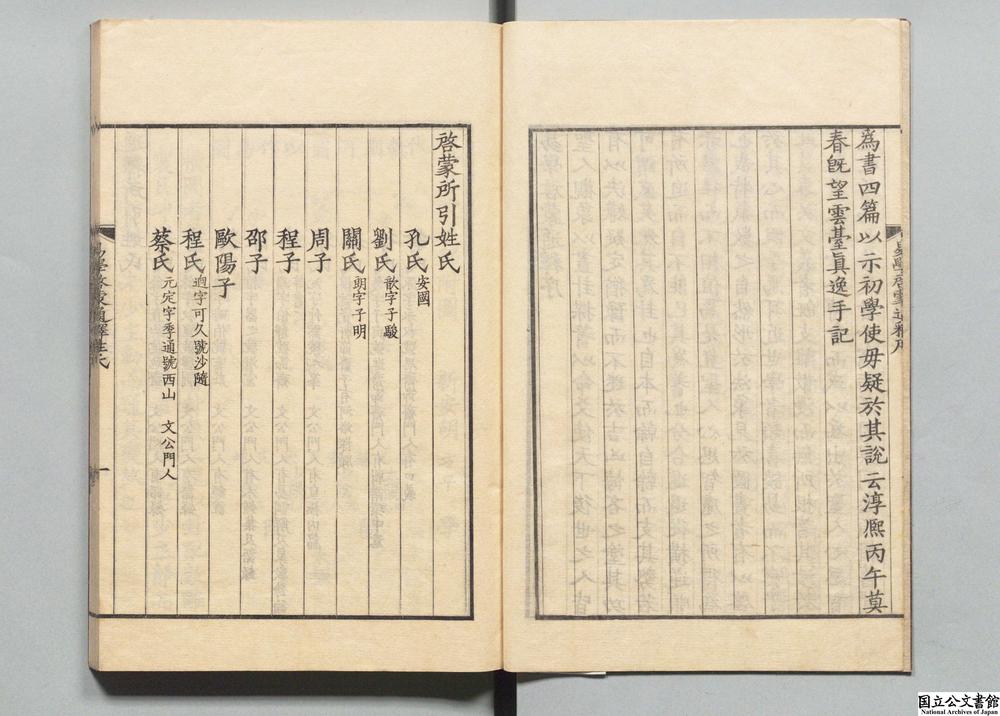 為書四篇以示初學使毋疑於其説云淳熈丙午莫
春旣望雲臺眞逸手記
啓蒙所引姓氏
孔氏安國
劉氏歆字子駿
關氏朗字子明
周子
程子
邵子
歐陽子
程氏逈字可久號沙隨
蔡氏元定字季通號西山 文公門人
一
国立公文書館
National Archives of Japan